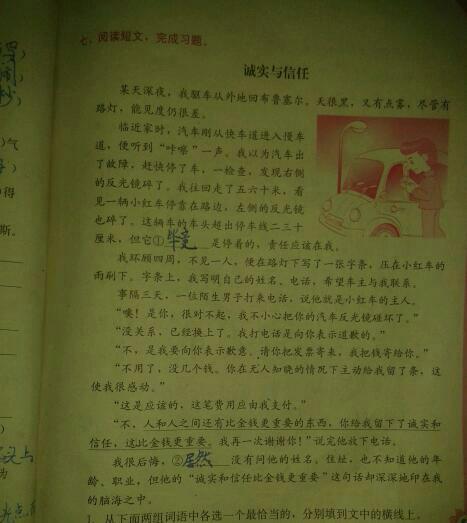 七、阅读短文，完成习题。
诚实与信任
某天深夜，我驱车从外地回布鲁塞尔。天很黑，又有点雾，尽管有
路灯，能见度仍很差。
临近家时，汽车刚从快车道进入慢车
道，便听到“咔嚓”一声。我以为汽车出
了故障，赶快停了车，一检查，发现右侧
的反光镜碎了。我往回走了五六十米，看
见一辆小红车停靠在路边，左侧的反光镜
也碎了。这辆车的车头超出停车线二三十
厘米，但它①毕竟是停着的，责任应该在我。
我环顾四周，不见一人，便在路灯下写了一张字条，压在小红车的
雨刷下。字条上，我写明自己的姓名、电话，希望车主与我联系。
事隔三天，一位陌生男子打来电话，说他就是小红车的主人。
“噢！是你，很对不起，我不小心把你的汽车反光镜碰坏了。”
“没关系，已经换上了。我打电话是向你表示道歉的。”
“不，是我要向你表示歉意。请你把发票寄来，我把钱寄给你。”
“不用了，没几个钱。你在无人知晓的情况下主动给我留了条，这
使我很感动。”
“这是应该的，这笔费用应由我支付。”
“不，人和人之间还有比金钱更重要的东西，你给我留下了诚实和
信任，这比金钱更重要。我再一次谢谢你！”说完他放下电话。
我很后悔，②居然没有问他的姓名、住址，也不知道他的年
龄、职业，但他的“诚实和信任比金钱更重要”这句话却深深地印在我
的脑海之中。
1. 从下面两组词语中各选一个最恰当的，分别填到文中的横线上。